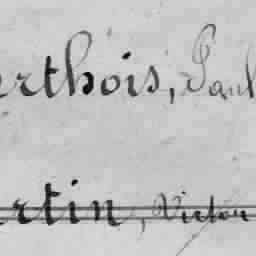 erthois, Paul
artin, Victor